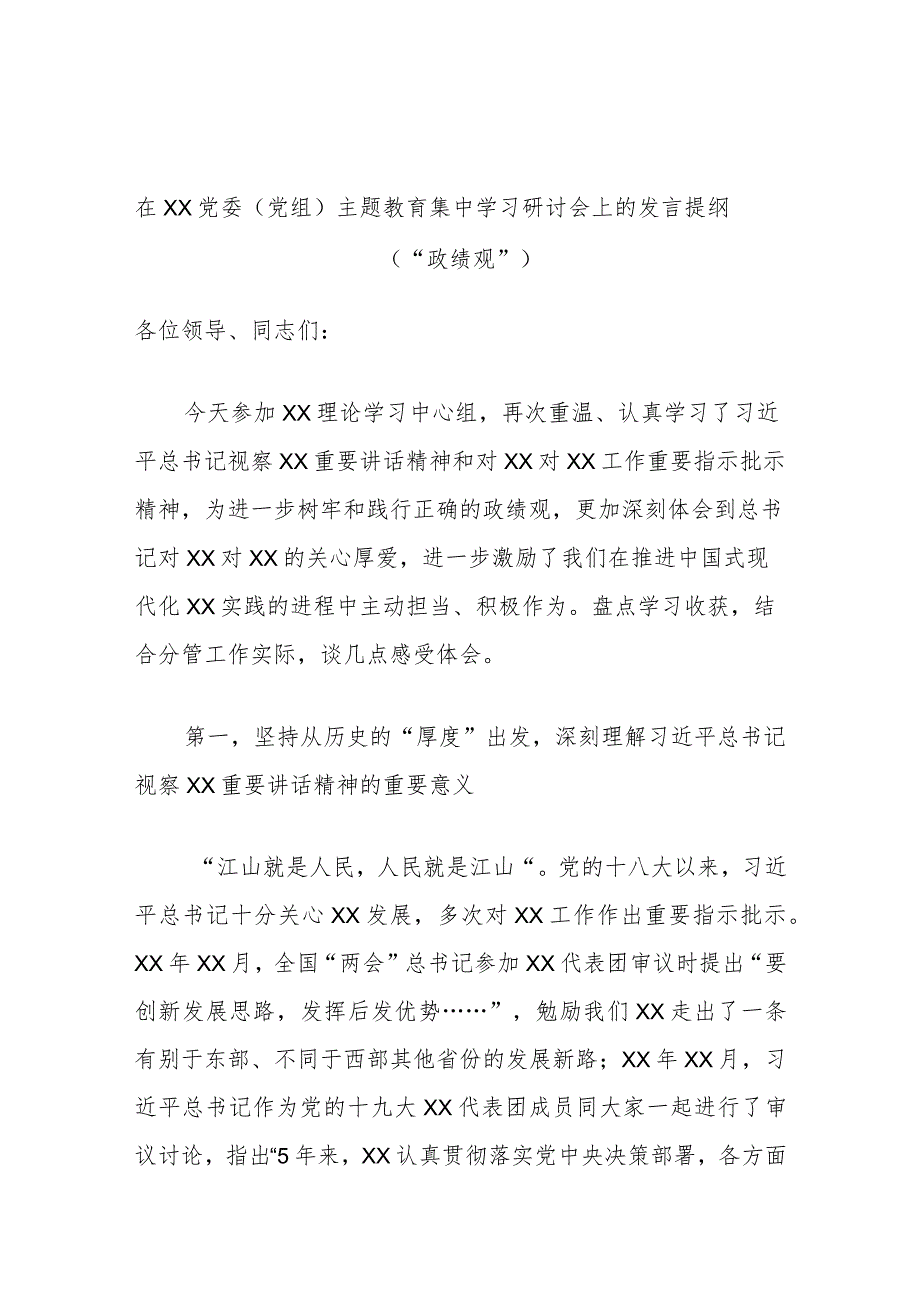 在 XX 党委（党组）主题教育集中学习研讨会上的发言提纲
（“政绩观”）
各位领导、同志们：
今天参加 XX 理论学习中心组，再次重温、认真学习了习近
平总书记视察 XX 重要讲话精神和对 XX 对 XX 工作重要指示批示
精神，为进一步树牢和践行正确的政绩观，更加深刻体会到总书
记对 XX 对 XX 的关心厚爱，进一步激励了我们在推进中国式现
代化 XX 实践的进程中主动担当、积极作为。盘点学习收获，结
合分管工作实际，谈几点感受体会。
第一，坚持从历史的“厚度”出发，深刻理解习近平总书记
视察 XX 重要讲话精神的重要意义
“江山就是人民，人民就是江山“。党的十八大以来，习近
平总书记十分关心 XX 发展，多次对 XX 工作作出重要指示批示。
XX 年 XX 月，全国“两会”总书记参加 XX 代表团审议时提出“要
创新发展思路，发挥后发优势……”，勉励我们 XX 走出了一条
有别于东部、不同于西部其他省份的发展新路；XX 年 XX 月，习
近平总书记作为党的十九大 XX 代表团成员同大家一起进行了审
议讨论，指出“5 年来，XX 认真贯彻落实党中央决策部署，各方面